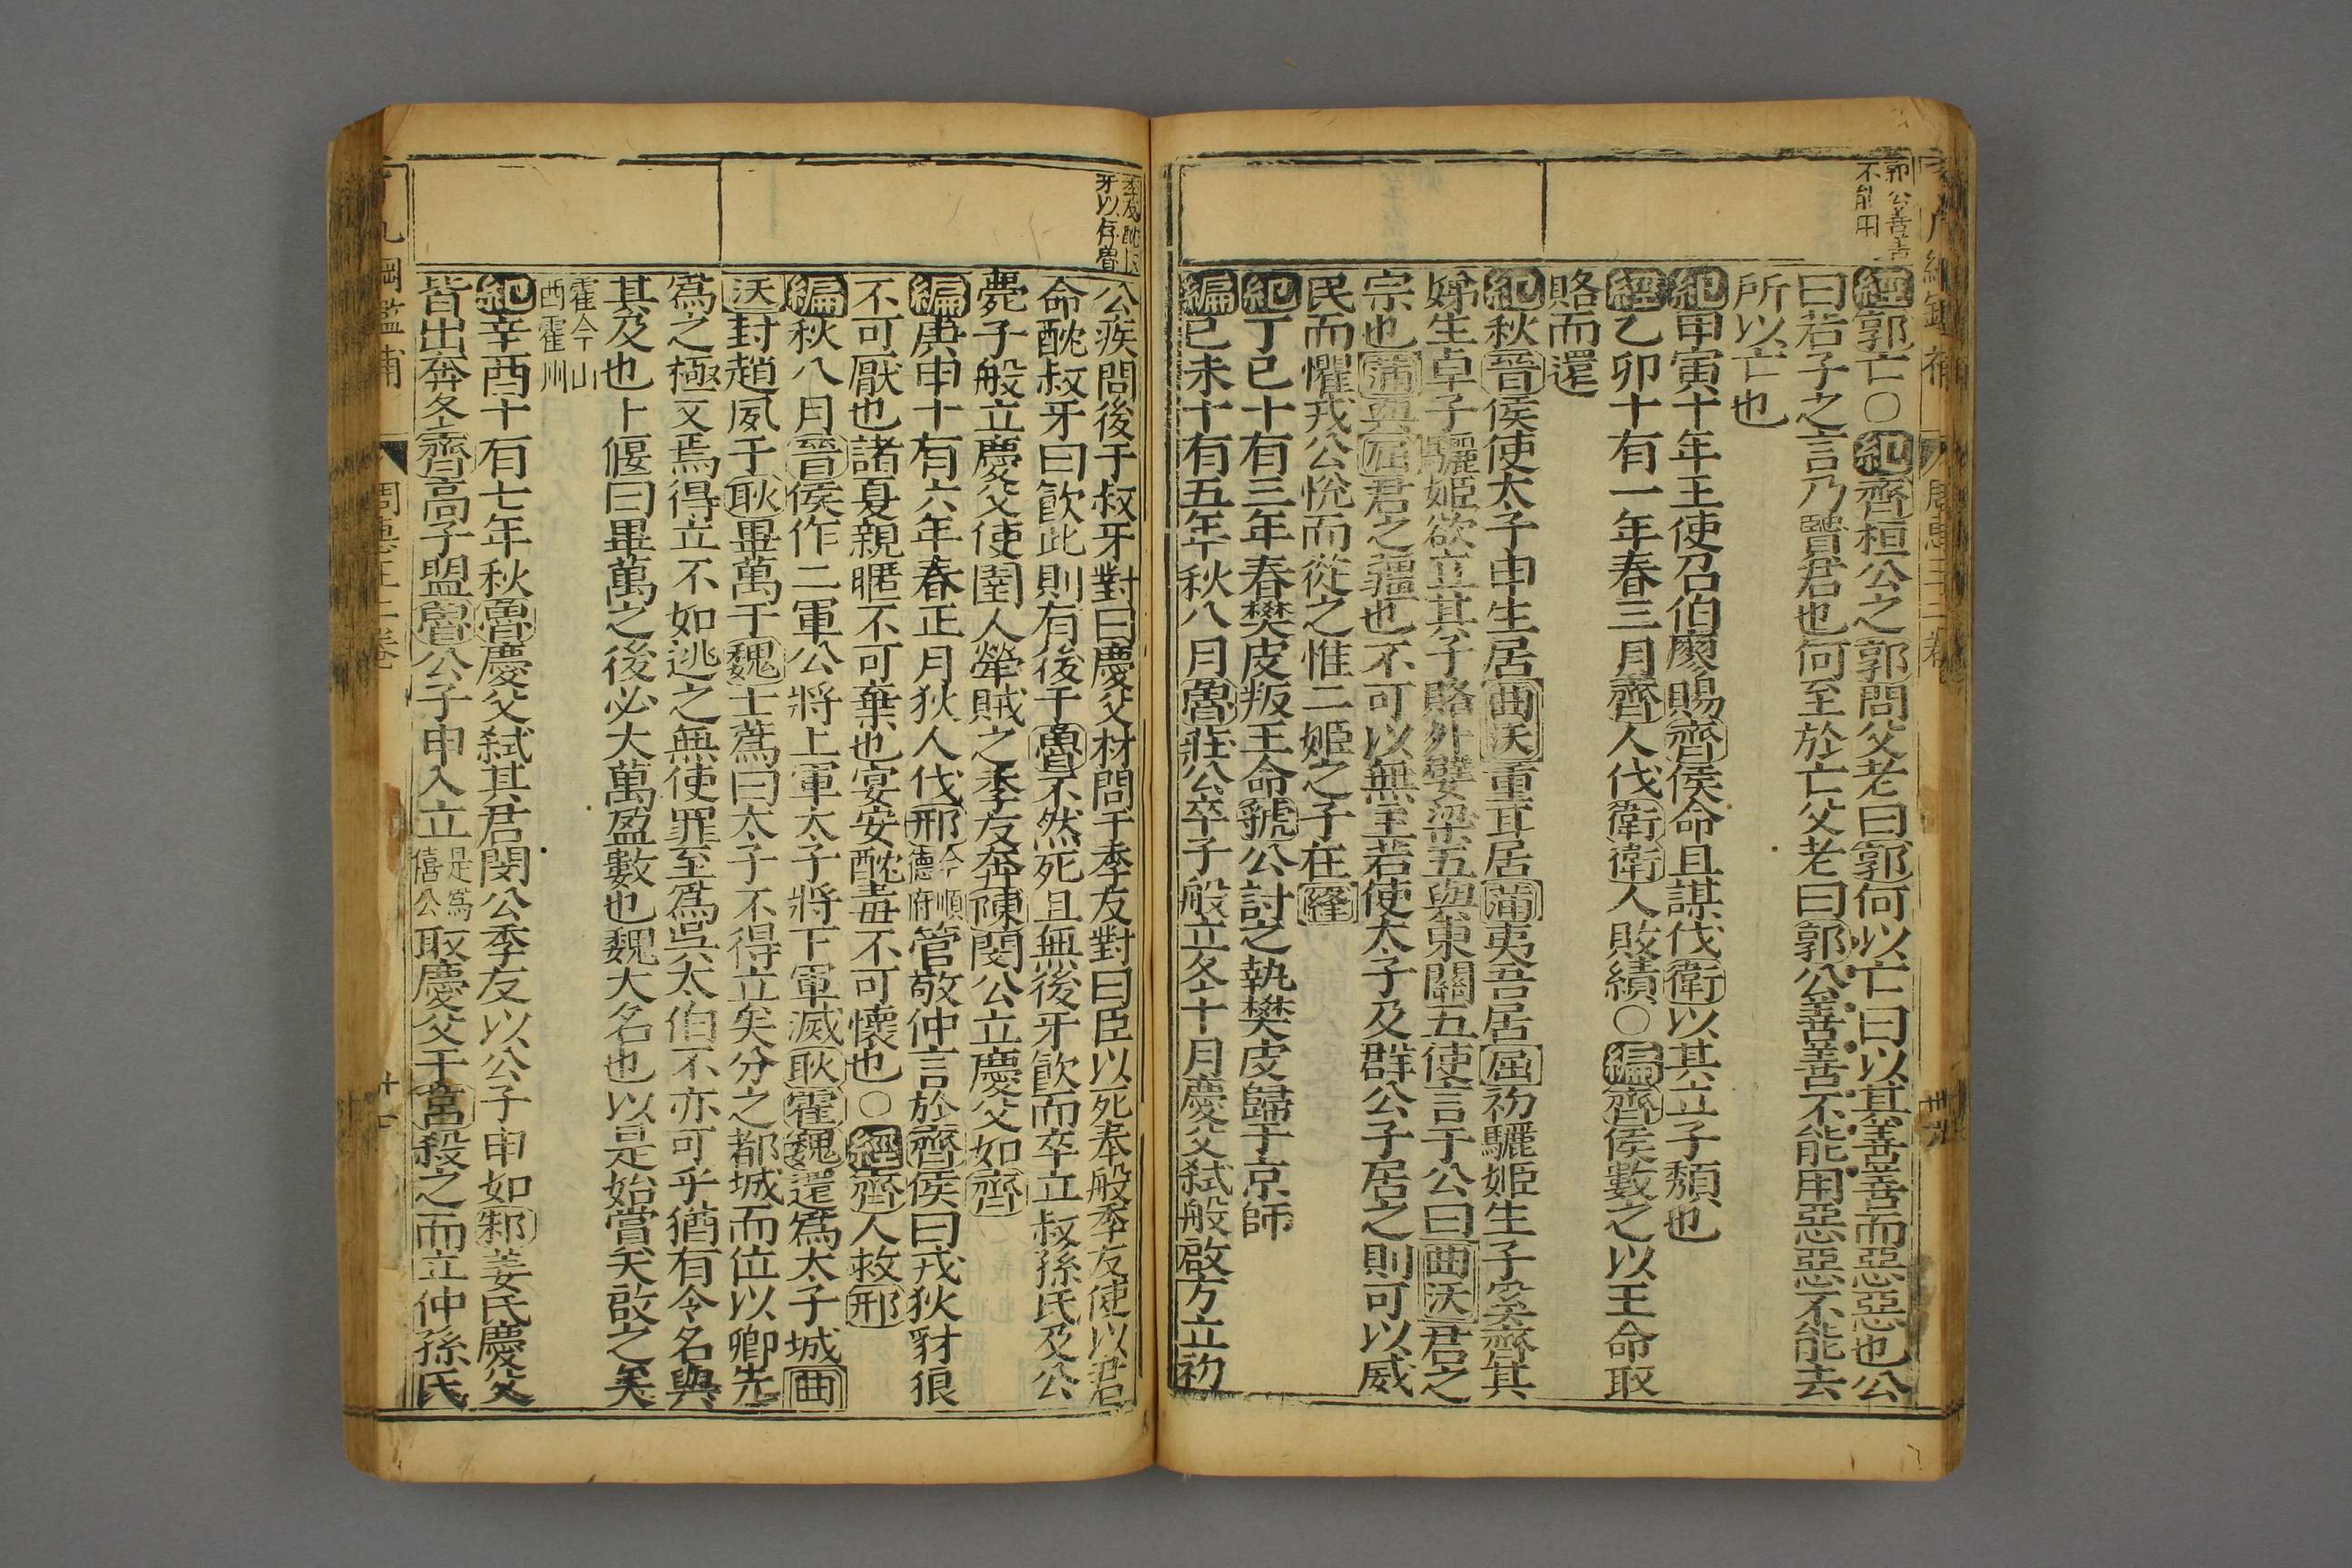 郭公善善
不能用
經郭亡○紀齊桓公之郭問父老曰郭何以亡曰以其善善而惡惡也公
曰若子之言乃賢君也何至於亡父老曰郭公善善不能用惡惡不能去
所以亡也
紀甲寅十年王使召伯廖賜齊侯命且謀伐衛以其立子頹也
經乙卯十有一年春三月齊人伐衛衛人敗績○編齊侯數之以王命取
賂而還
紀秋晉侯使太子申生居曲沃重耳居蒲夷吾居屈初驪姬生子奚齊其
娣生卓子驪姬欲立其子賂外嬖梁五與東關五使言于公曰曲沃君之
宗也蒲與屈君之疆也不可以無主若使太子及群公子居之則可以威
民而懼戎公悅而從之惟二姬之子在絳
紀丁巳十有三年春樊皮叛王命虢公討之執樊皮歸于京師
編己未十有五年秋八月魯莊公卒子般立冬十月慶父弒般啟方立初
季友酖
牙以存魯
公疾問後于叔牙對曰慶父材問于季友對曰臣以死奉般季友使以君
命酖叔牙曰飲此則有後于魯不然死且無後牙飲而卒立叔孫氏及公
薨子般立慶父使圉人犖賊之季友奔陳閔公立慶父如齊
編庚申十有六年春正月狄人伐邢今順德府管敬仲言於齊侯曰戎狄豺狼
不可厭也諸夏親暱不可棄也宴安酖毒不可懷也○經齊人救邢
編秋八月晉侯作二軍公將上軍太子將下軍滅耿霍魏還為太子城曲
沃封趙夙于耿畢萬于魏士蒍曰太子不得立矣分之都城而位以卿先
為之極又焉得立不如逃之無使罪至為吳太伯不亦可乎猶有令名與
其及也卜偃曰畢萬之後必大萬盈數也魏大名也以是始賞天啟之矣
霍今山
西霍州
紀辛酉十有七年秋魯慶父弒其君閔公季友以公子申如邾姜氏慶父
皆出奔冬齊高子盟魯公子申入立是為僖公取慶父于莒殺之而立仲孫氏
綱鑑補 周惠王二卷